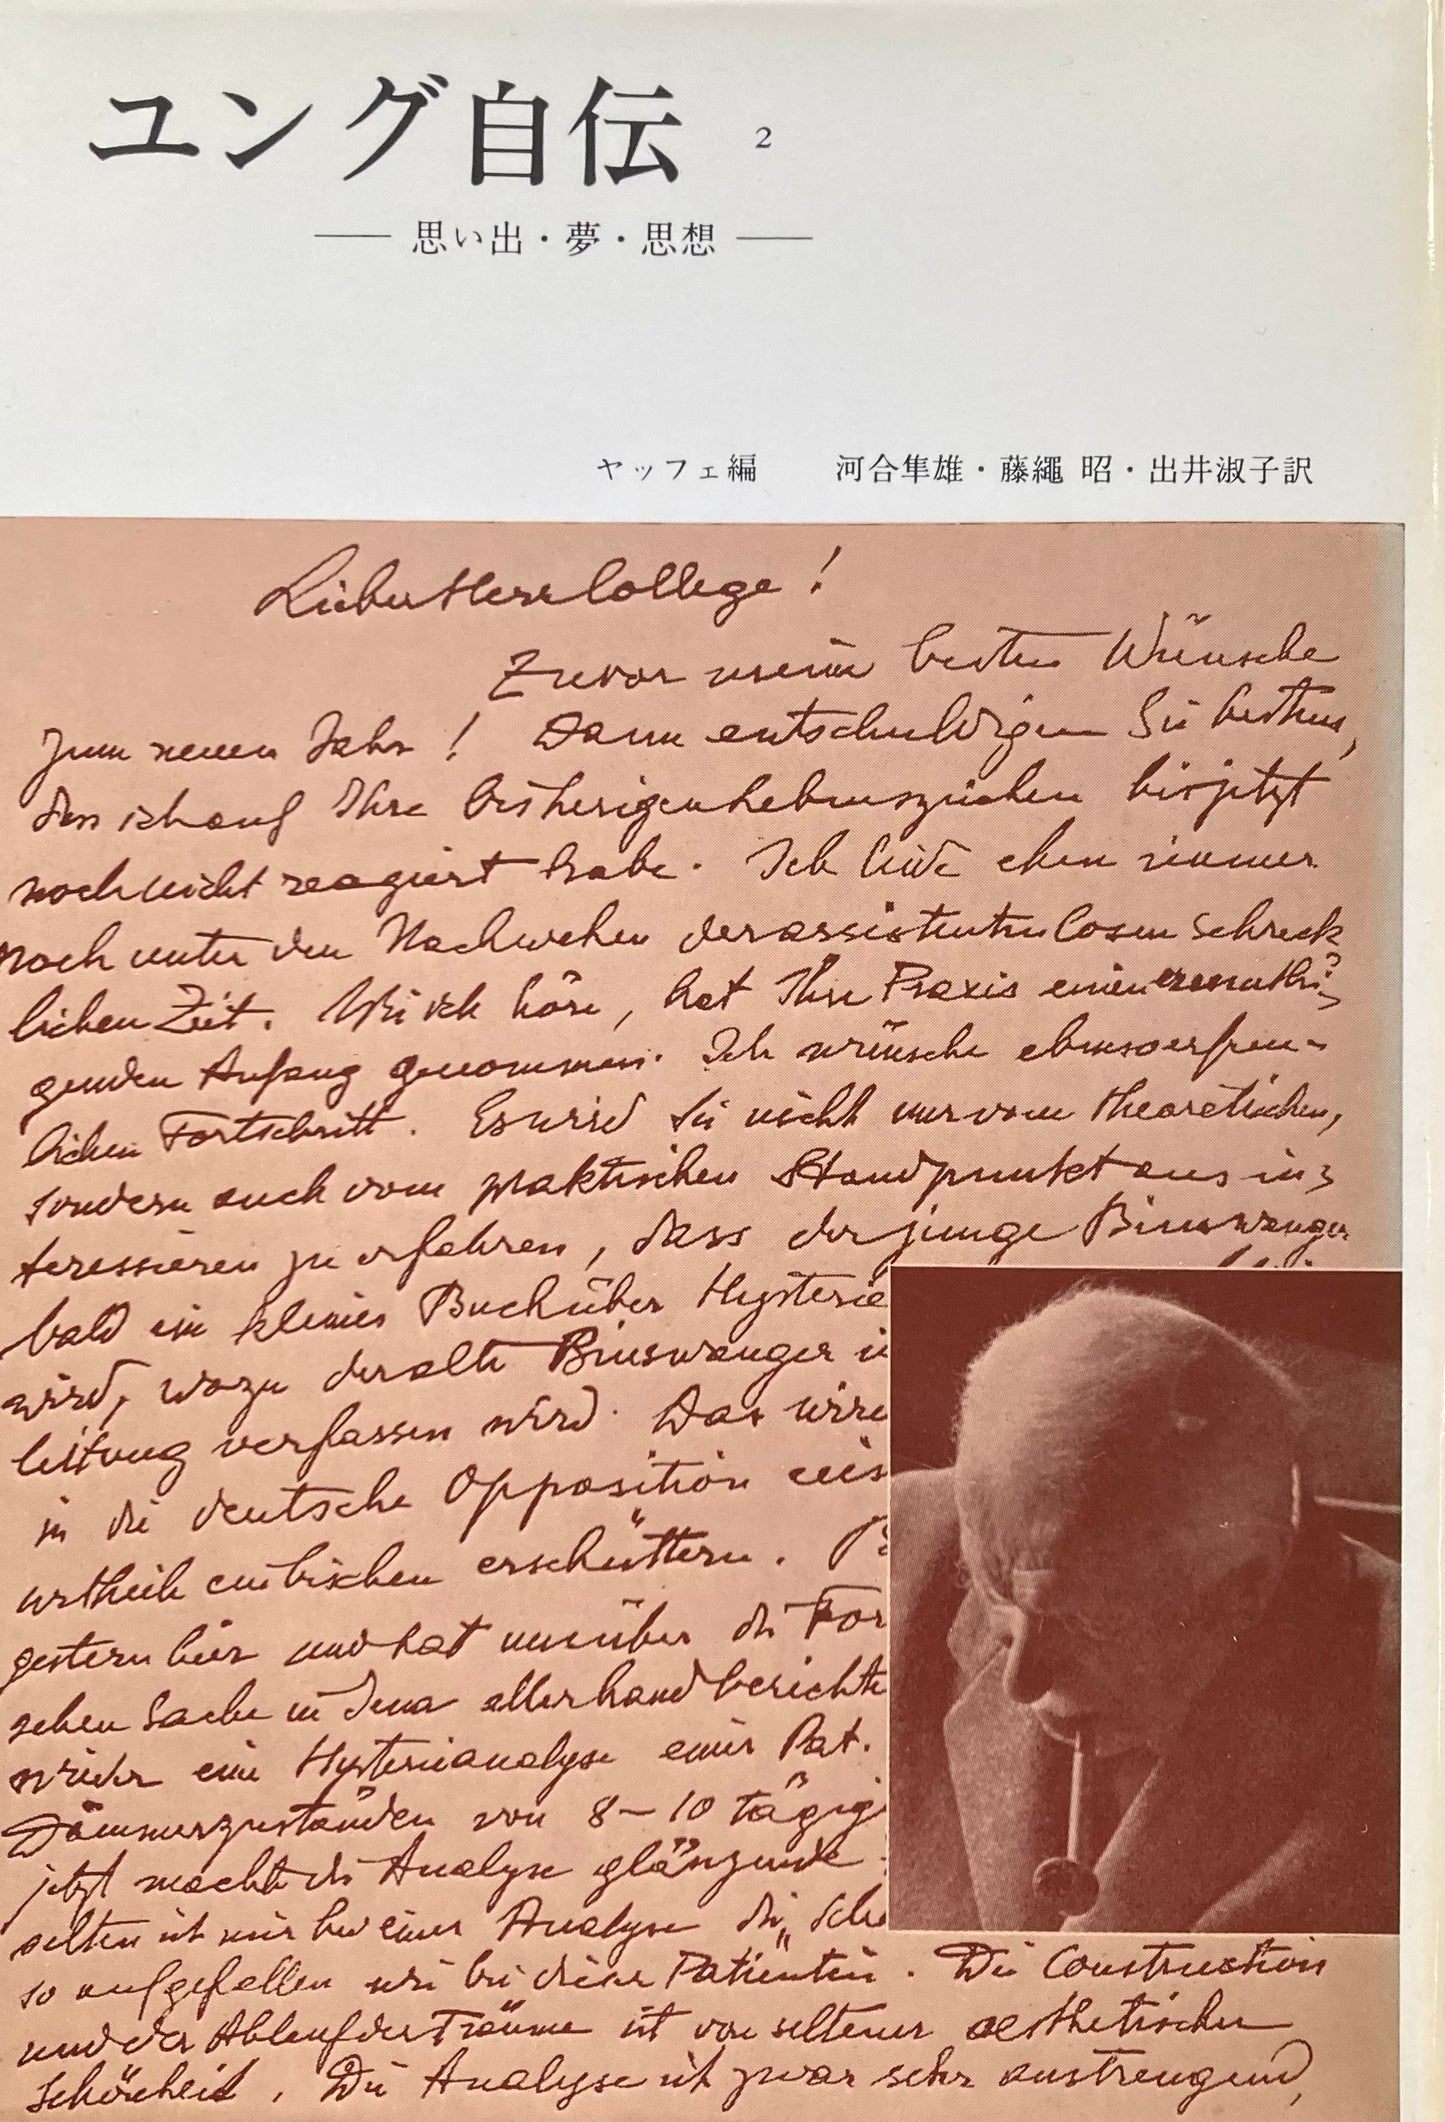 ユング自伝 2
── 思い出・夢・思想 ──
ヤッフェ編 河合隼雄・藤繩 昭・出井淑子訳
Lieber Herr College!
Zuvor meine besten Wünsche
zum neuen Jahr! Dann entschuldigen Sie bestens,
dass ich auf Ihre bisherigen Lebenszeichen bis jetzt
noch nicht reagiert habe. Ich leide eben immer
noch unter den Nachwehen der assistentenlosen schreck
lichen Zeit. Wie ich höre, hat Ihre Praxis einen ermuthi-
genden Anfang genommen. Ich wünsche ebenso erfreu-
lichen Fortschritt. Es wird Sie nicht nur vom theoretischen,
sondern auch vom praktischen Standpunkt aus in-
teressieren zu erfahren, dass der junge Binswanger
bald ein kleines Buch über Hysterie
wird, wozu der alte Binswanger
verfassen wird. Das
in die deutsche Opposition
urtheile ein bischen erschüttern.
gestern hier und hat mir über die For
schen Sache in Jena allerhand berichte
wieder eine Hysterieanalyse einer Pat.
Dämmerzuständen von 8–10 tägig
jetzt macht die Analyse glänzende
selten ist mir bei einer Analyse die
so aufgefallen wie bei dieser Patientin. Die Construction
und der Ablauf der Träume ist von seltener aesthetischer
Schönheit. Die Analyse ist zwar sehr anstrengend,